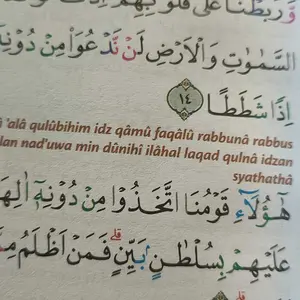 وَرَبَطْنَا عَلٰى قُلُوْبِهِمْ اِذْ
السَّمٰوٰتِ وَالْاَرْضِ لَنْ نَّدْعُوَا۟ مِنْ دُوْنِهٖٓ
اِذًا شَطَطًا ١٤
'alâ qulûbihim idz qâmû faqâlû rabbunâ rabbus
lan nad'uwa min dûnihî ilâhal laqad qulnâ idzan
syathathâ
هٰٓؤُلَاۤءِ قَوْمُنَا اتَّخَذُوْا مِنْ دُوْنِهٖٓ اٰلِهَةً
عَلَيْهِمْ بِسُلْطٰنٍۢ بَيِّنٍۗ فَمَنْ اَظْلَمُ